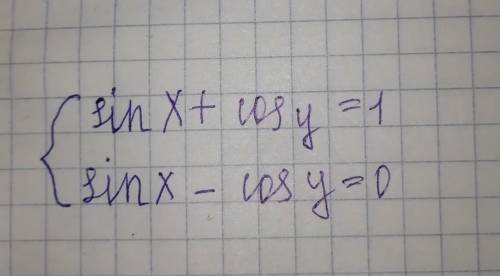 sin x + cos y = 1
sin x - cos y = 0